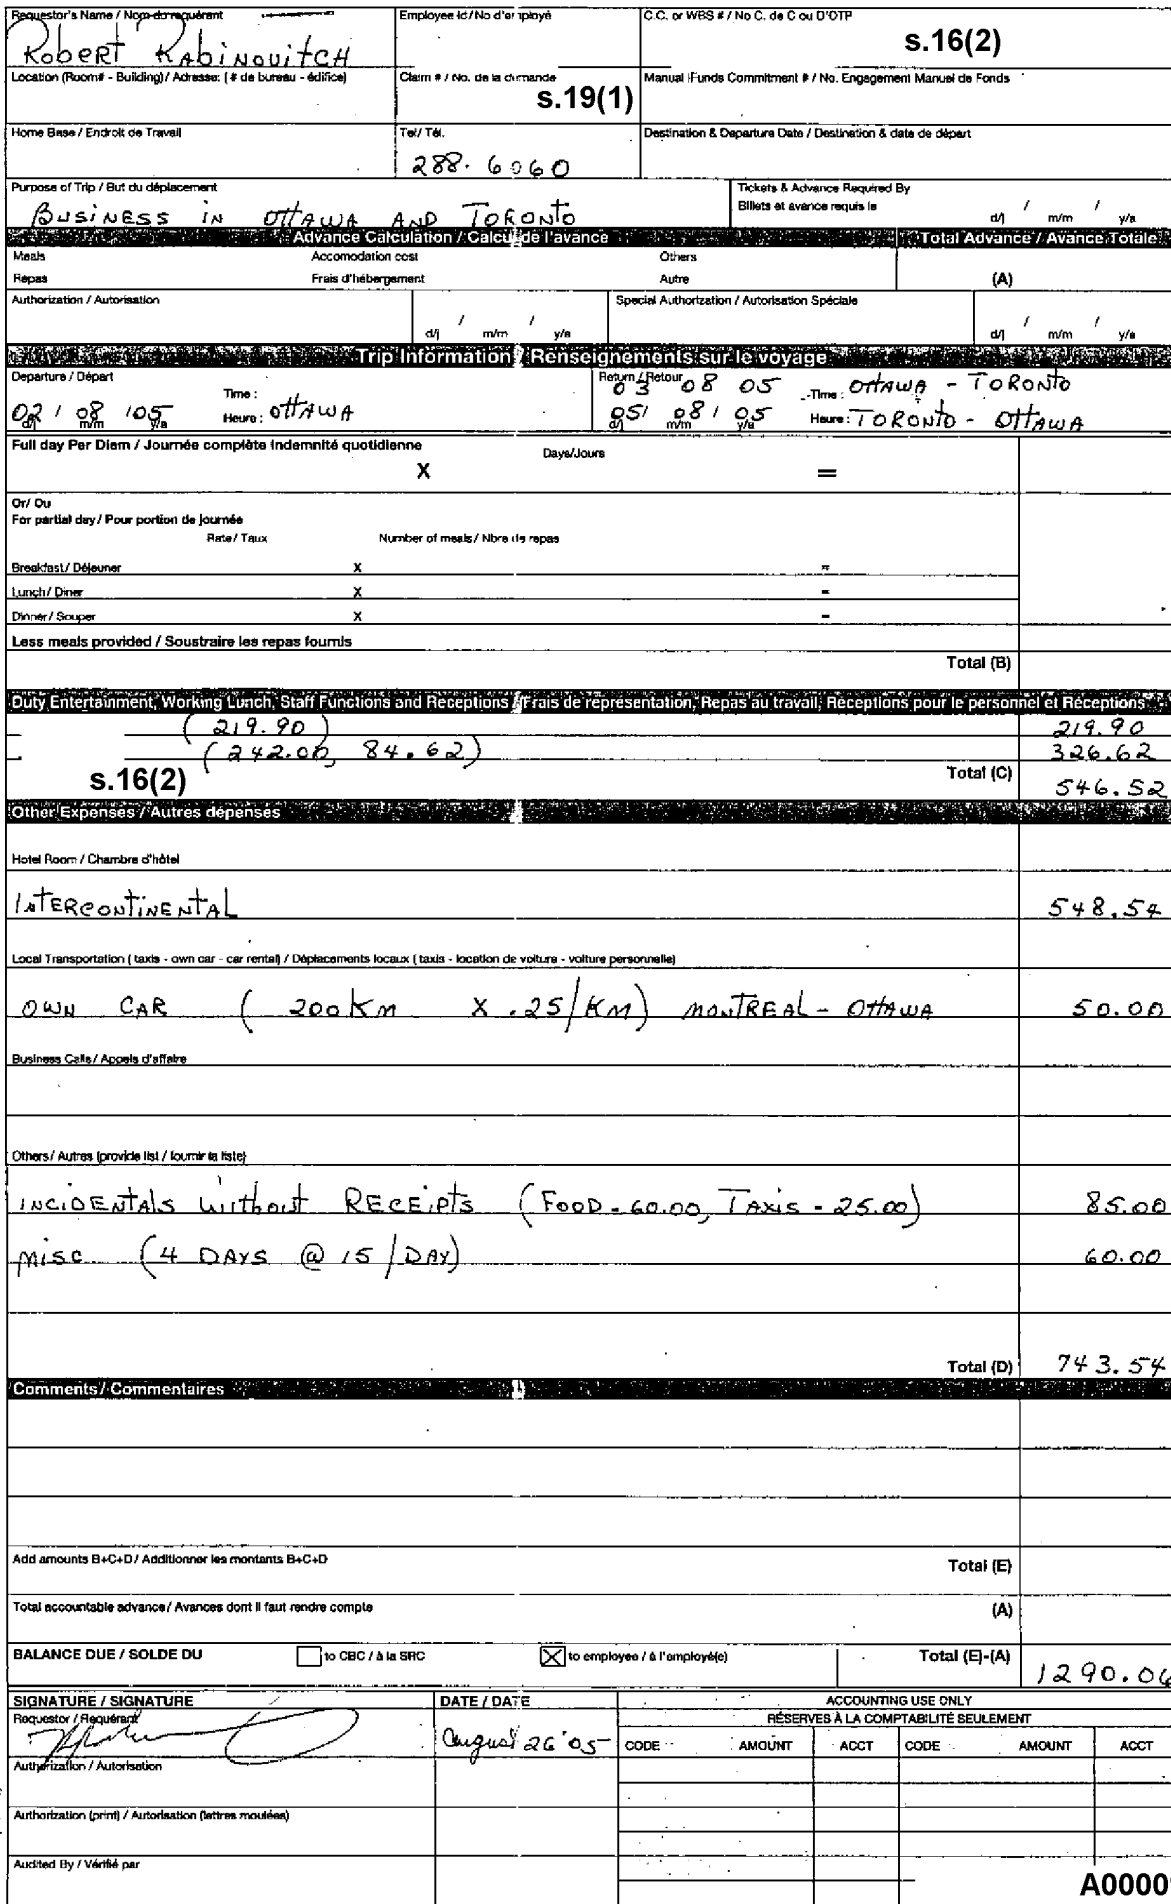 Requestor's Name / Nom du requérant
Employee Id/No d'employé
C.C. or WBS # / No C. de C ou D'OTP
Robert Rabinovitch
s.16(2)
Location (Room# - Building)/ Adresse: (# de bureau - édifice)
Claim # / No. de la demande
Manual Funds Commitment # / No. Engagement Manuel de Fonds
s.19(1)
Home Base / Endroit de Travail
Tel/ Tél.
Destination & Departure Date / Destination & date de départ
288. 6060
Purpose of Trip / But du déplacement
Tickets & Advance Required By
Billets et avance requis le
d/j / m/m / y/a
BUSINESS IN OTTAWA AND TORONTO
Advance Calculation / Calcul de l'avance
Total Advance / Avance Totale
Meals
Accomodation cost
Others
Repas
Frais d'hébergement
Autre
(A)
Authorization / Autorisation
d/j / m/m / y/a
Special Authorization / Autorisation Spéciale
d/j / m/m / y/a
Trip Information / Renseignements sur le voyage
Departure / Départ
Time :
Return / Retour
03 08 05
Time : OTTAWA - TORONTO
02 / 08 / 05
Heure : OTTAWA
05 / 08 / 05
Heure : TORONTO - OTTAWA
d/j m/m y/a
d/j m/m y/a
Full day Per Diem / Journée complète Indemnité quotidienne
Days/Jours
X =
Or/ Ou
For partial day / Pour portion de journée
Rate / Taux
Number of meals / Nbre de repas
Breakfast / Déjeuner X =
Lunch / Diner X =
Dinner / Souper X =
Less meals provided / Soustraire les repas fournis
Total (B)
Duty Entertainment, Working Lunch, Staff Functions and Receptions / Frais de représentation, Repas au travail, Réceptions pour le personnel et Réceptions
(219.90) 219.90
(242.00, 84.62) 326.62
s.16(2)
Total (C) 546.52
Other Expenses / Autres dépenses
Hotel Room / Chambre d'hôtel
INTERCONTINENTAL 548.54
Local Transportation ( taxis - own car - car rental) / Déplacements locaux ( taxis - location de voiture - voiture personnelle)
OWN CAR ( 200 KM X .25/KM) MONTREAL - OTTAWA 50.00
Business Calls / Appels d'affaire
Others / Autres (provide list / fournir la liste)
INCIDENTALS WITHOUT RECEIPTS (FOOD - 60.00, TAXIS - 25.00) 85.00
MISC (4 DAYS @ 15 / DAY) 60.00
Total (D) 743.54
Comments / Commentaires
Add amounts B+C+D / Additionner les montants B+C+D
Total (E)
Total accountable advance / Avances dont il faut rendre compte
(A)
BALANCE DUE / SOLDE DU
to CBC / à la SRC
to employee / à l'employé(e)
Total (E)-(A)
1290.06
SIGNATURE / SIGNATURE
DATE / DATE
ACCOUNTING USE ONLY
RÉSERVES À LA COMPTABILITÉ SEULEMENT
Requestor / Requérant
August 26 '05
CODE AMOUNT ACCT CODE AMOUNT ACCT
Authorization / Autorisation
Authorization (print) / Autorisation (lettres moulées)
Audited By / Vérifié par
A0000